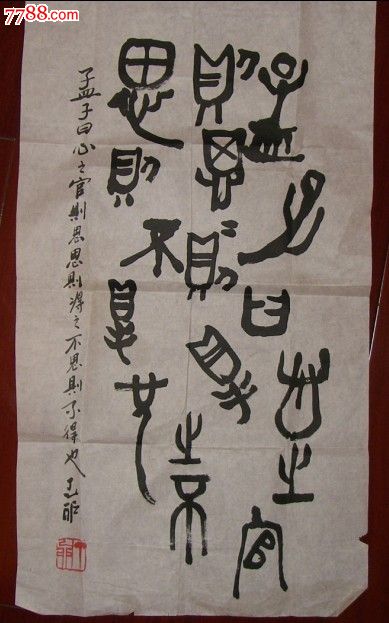 7788.com
孟子曰心之官
則思〻則得之不
思則不得也
孟子曰心之官則思思則得之不思則不得也